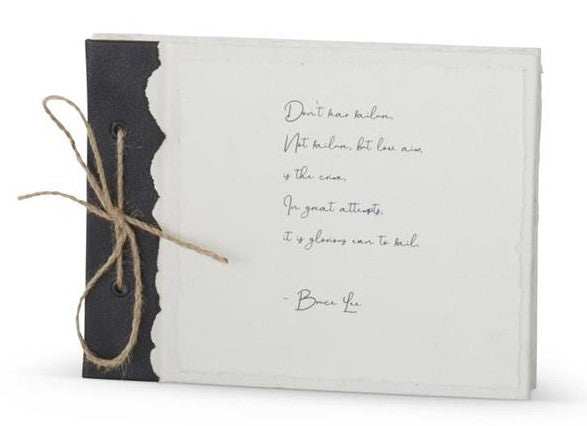 Don't fear failure,
Not failure, but low aim,
is the crime.
In great attempts,
it is glorious even to fail.
- Bruce Lee